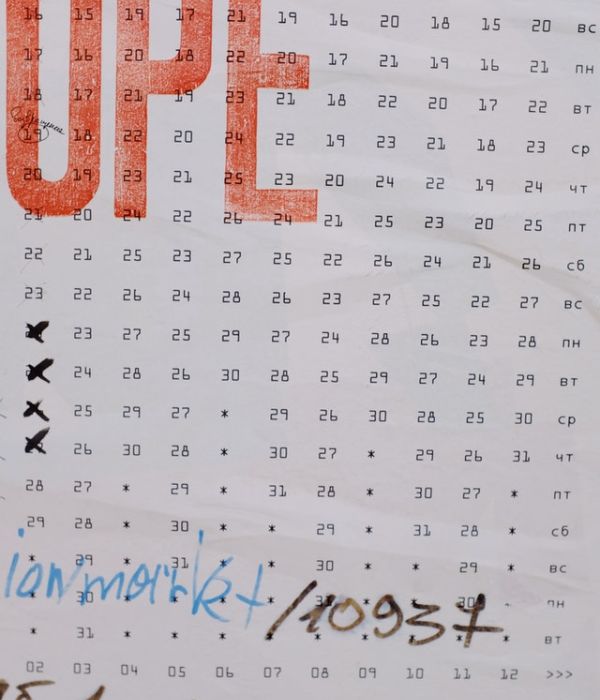 UPE
16 15 19 17 21 19 16 20 18 15 20 вс
17 16 20 18 22 20 17 21 19 16 21 пн
18 17 21 19 23 21 18 22 20 17 22 вт
19 18 22 20 24 22 19 23 21 18 23 ср
20 19 23 21 25 23 20 24 22 19 24 чт
21 20 24 22 26 24 21 25 23 20 25 пт
22 21 25 23 27 25 22 26 24 21 26 сб
23 22 26 24 28 26 23 27 25 22 27 вс
23 27 25 29 27 24 28 26 23 28 пн
24 28 26 30 28 25 29 27 24 29 вт
25 29 27 * 29 26 30 28 25 30 ср
26 30 28 * 30 27 * 29 26 31 чт
28 27 * 29 * 31 28 * 30 27 * пт
29 28 * 30 * * 29 * 31 28 * сб
* 29 * 31 * * 30 * * 29 * вс
ionmarkt/10937
30 * * * 31 * * 30 пн
* 31 * * * * * * * * * вт
02 03 04 05 06 07 08 09 10 11 12 >>>